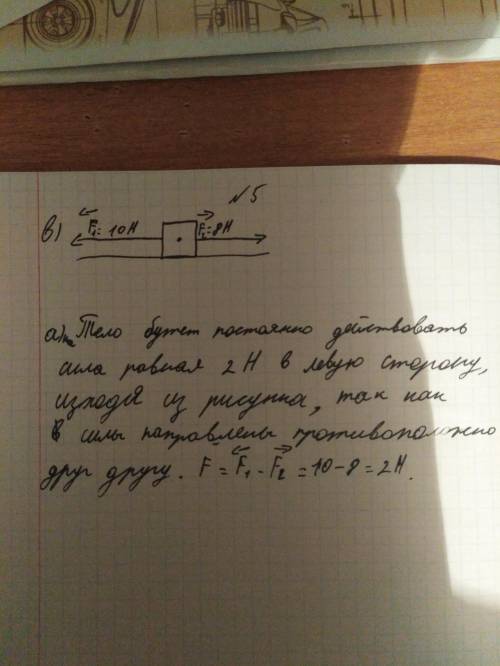 №5
в) F₁=10Н F₂=8Н
а) на Тело будет постоянно действовать
сила равная 2 Н в левую сторону,
изходя из рисунка, так как
силы направлены противоположно
друг другу. F = F₁ - F₂ = 10 - 8 = 2Н.